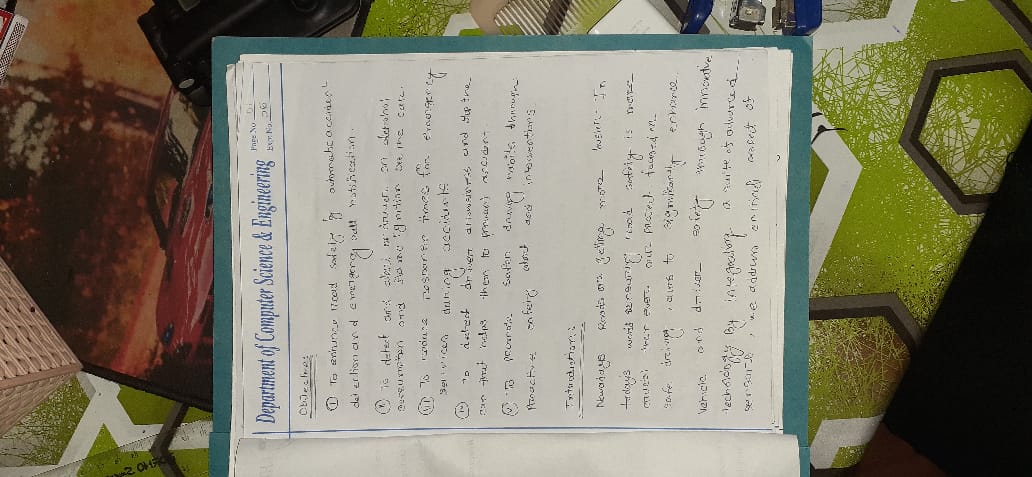 Department of Computer Science & Engineering
Page No.
Expt. No.
Objectives
① To enhance road safety by automatic accident
detection and emergency call notification.
② To detect and alert if driver on alcohol
consumption and the car.
③ To reduce response times for emergency
services during accidents
④ To detect driver drowsiness and
that helps them to prevent accident
⑤ To promote safer driving habits through
Proactive safety alert and interventions
Introduction:
Nowadays Roads are getting more busier. In
todays world ensuring road safety is more
than ever. Our project focused on
safe driving, aims to significantly enhance
Vehicle and driver safety through innovative
technology By integrating a suite of advanced
sensors, we address critical aspect of